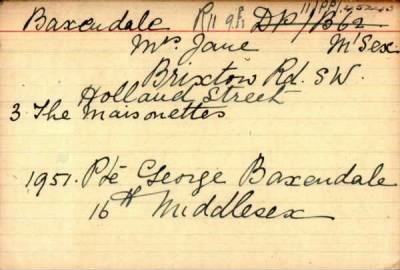 Baxendale R11 9 DP/B62
Mrs Jane M'Sex
Brixton Rd. SW.
Holland Street
3 The Maisonettes
1951. Pte George Baxendale
16th Middlesex